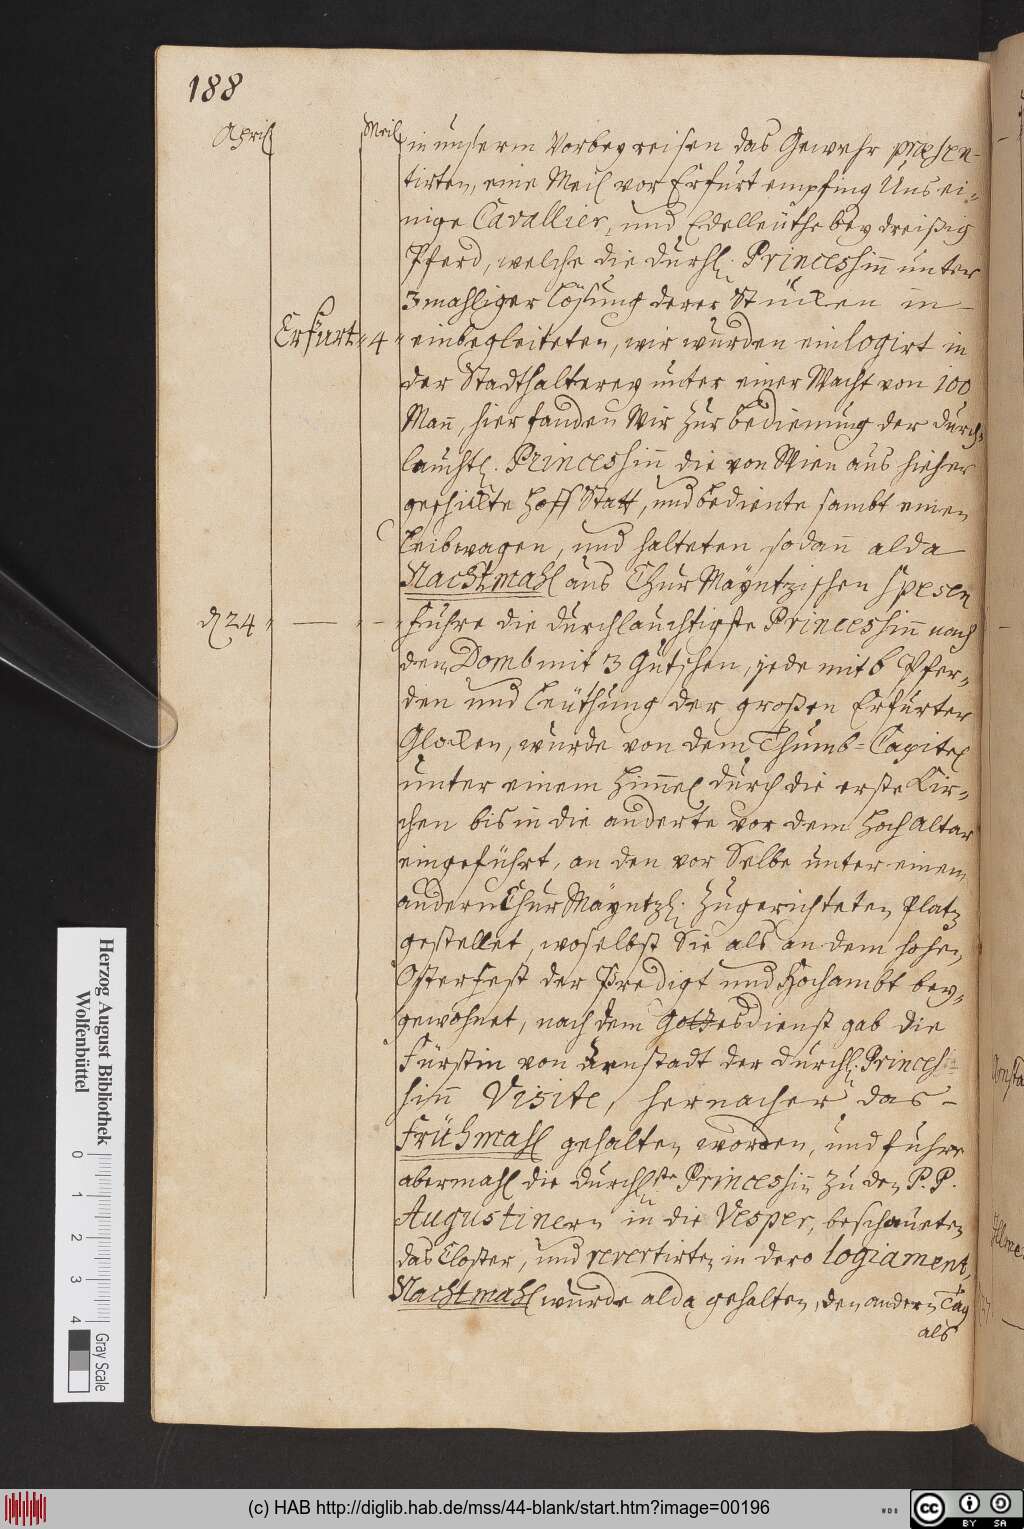 188
April
Meil
in unserm Vorbey reisen das Gewehr præsen-
tirten, eine Meil vor Erfurt empfing Uns ei-
nige Cavallier, und Edelleüthe bey dreißig
Pferd, welche die durchl. Princeshin̄ unter
3 mahliger Lösung derer Stücken in-
Erfurt 4 einbegleiteten, wir wurden einlogirt in
der Stadthalterey unter einer Wacht von 100
Man̄, hier fanden Wir zur Bedienung der durch-
lauchtl. Princeshin̄ die von Wien aus hieher
geschickte Hoff Statt, und Bediente sambt einen
Leibwagen, und halteten sodan̄ alda
Nachtmahl aus ChurMäyntzischen Spesen
d. 24 fuhre die durchlauchtigste Princeshin̄ nach
den Domb mit 3 Gutschen, jede mit 6 Pfer-
den und Leüthung der großen Erfurter
Glocken, wurde von dem Thumb-Capitel
unter einem Him̄el durch die erste Kir-
chen bis in die anderte vor dem Hoch Altar
eingeführt, an den vor Selbe unter einem
andern ChurMäyntzl. zugerichteten Platz
gestellet, woselbst Sie als an dem hohen
Osterfest der Predigt und Hochambt bey-
gewohnet, nach dem Gottesdienst gab die
Fürstin von Arnstadt der durchl. Princes-
hin̄ Visite, hernacher das-
Frühmahl gehalten worden, und fuhre
abermahl die durchlste Princeshin̄ zu den P. P.
Augustinern in die Vesper, beschaueten
das Closter, und revertirten in dero logiament,
Nachtmahl wurde alda gehalten, den andern Tag
als
Herzog August Bibliothek
Wolfenbüttel
0 1 2 3 4
Gray Scale
(c) HAB http://diglib.hab.de/mss/44-blank/start.htm?image=00196
WDB
CC BY SA